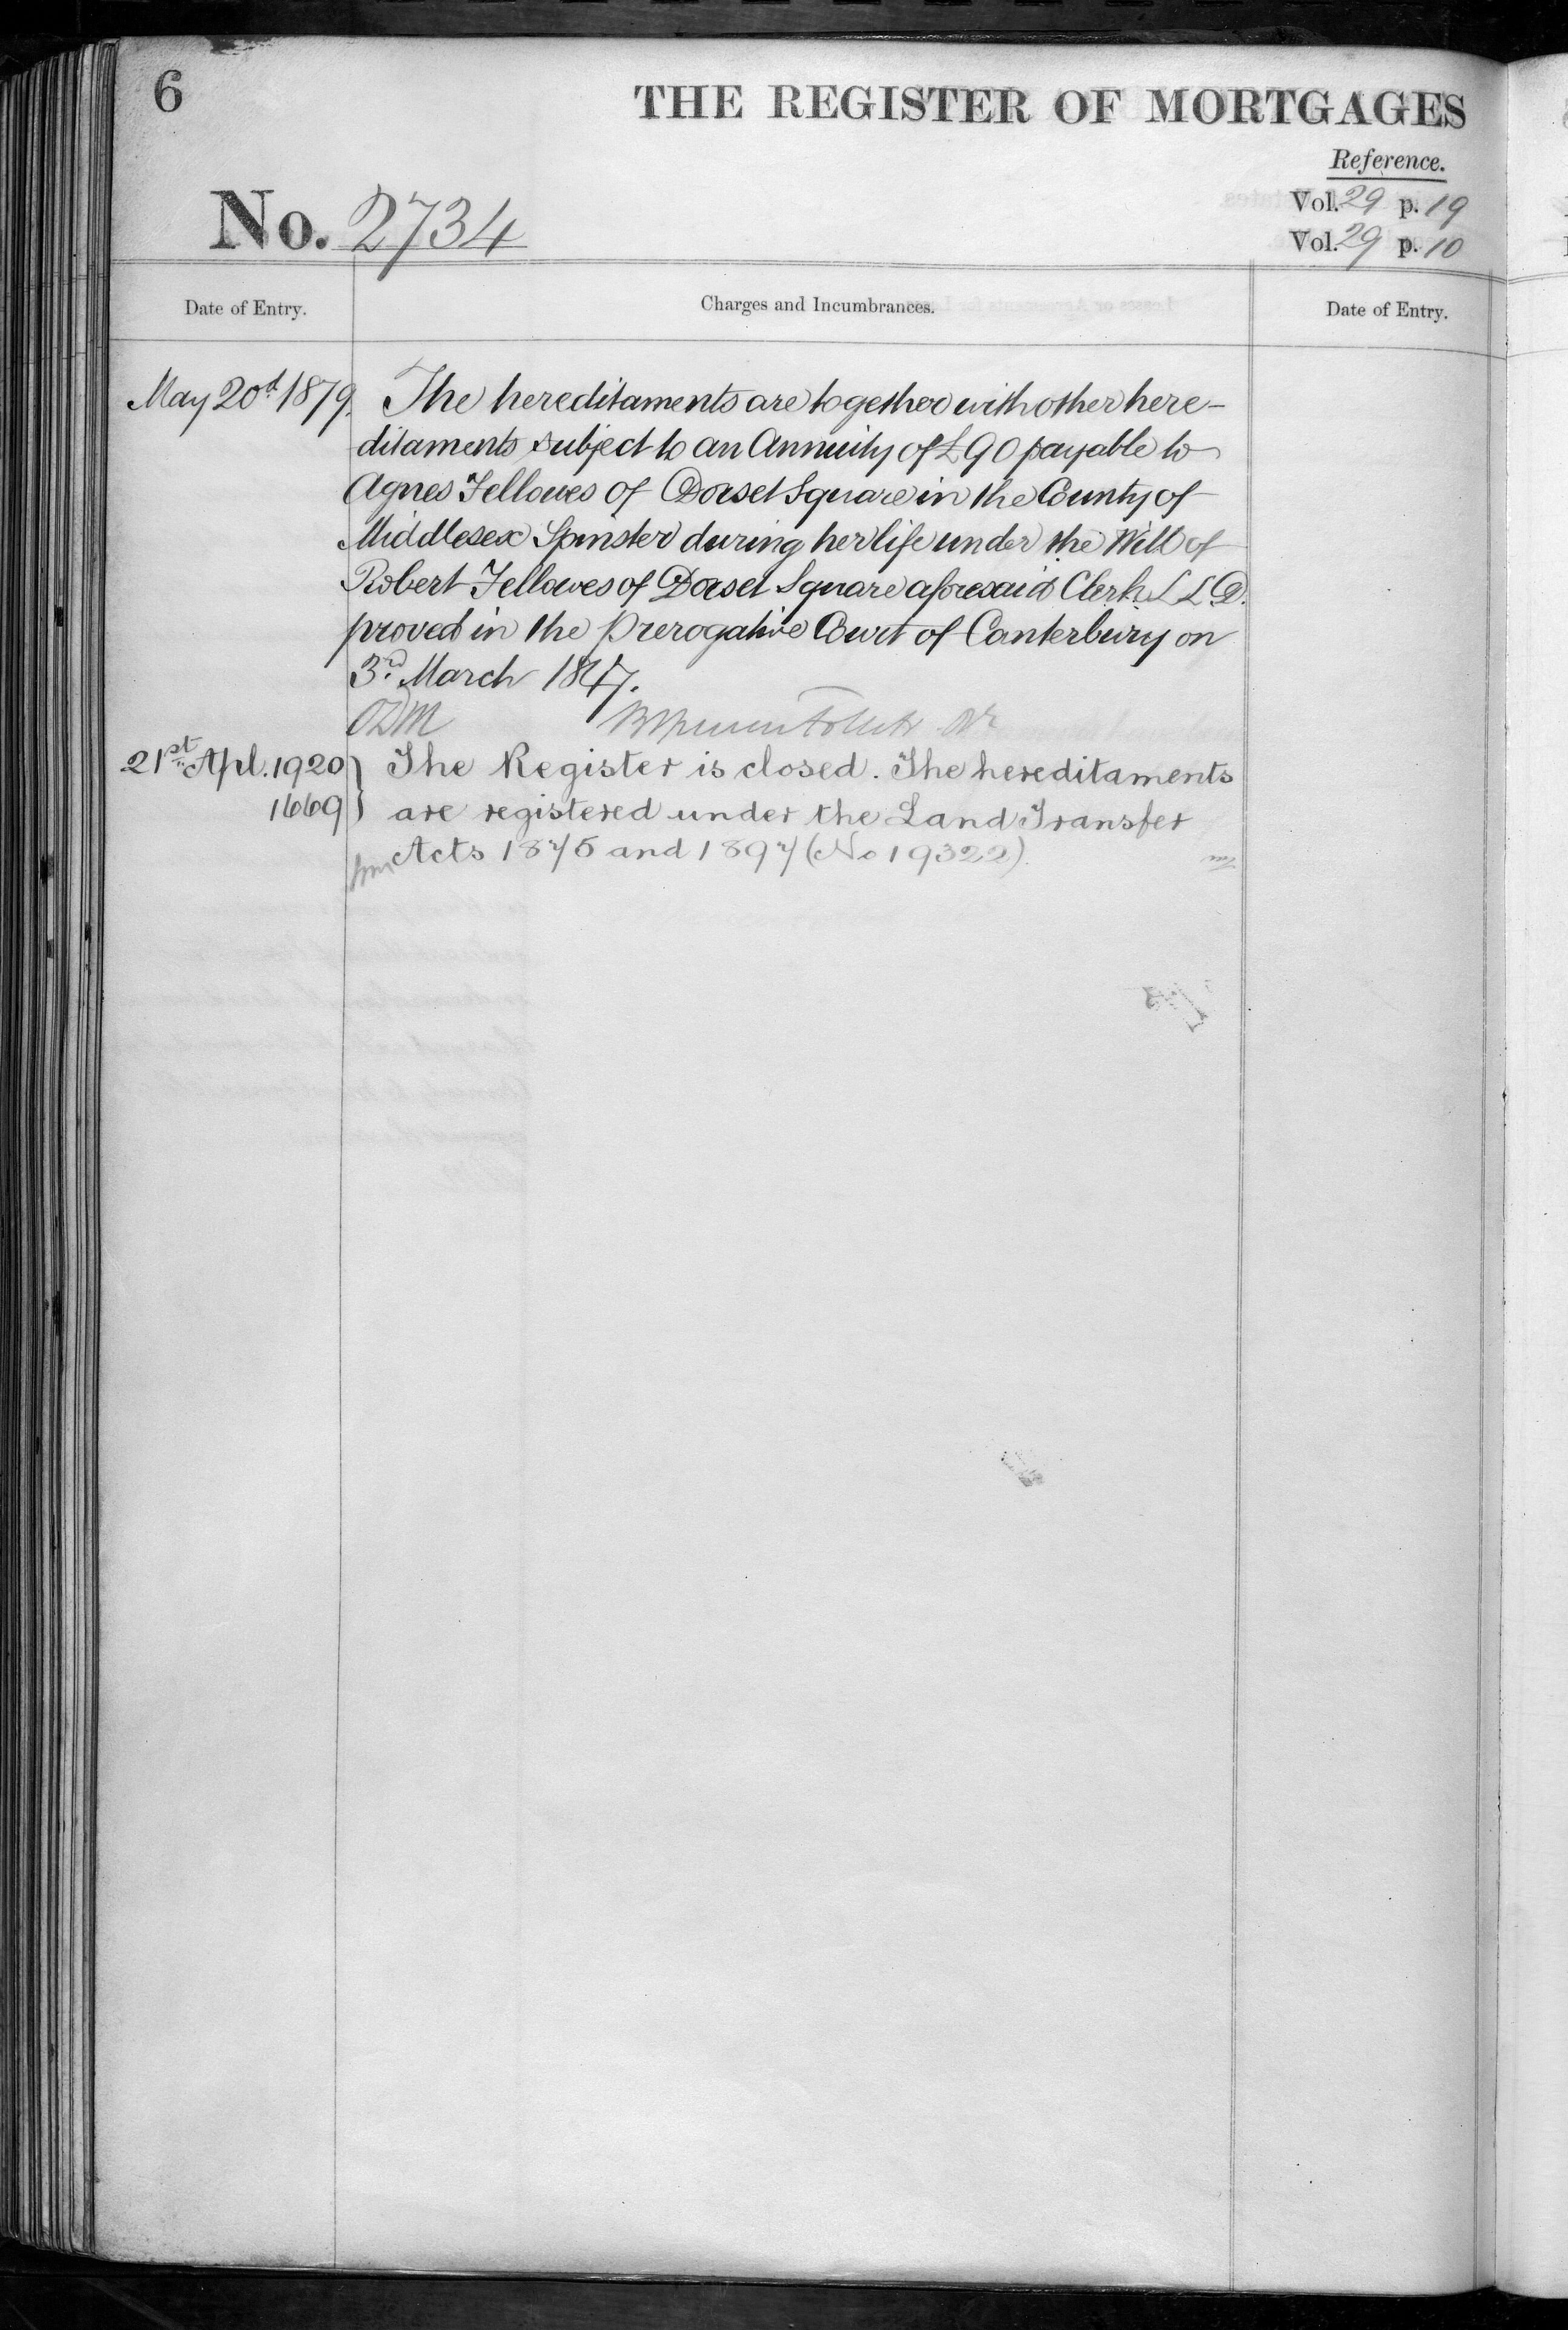 6
THE REGISTER OF MORTGAGES
Reference.
No. 2734
Vol. 29 p. 19
Vol. 29 p. 10
Date of Entry.
Charges and Incumbrances.
Date of Entry.
May 20th 1879. The hereditaments are together with other here-
ditaments subject to an Annuity of £90 payable to
Agnes Fellowes of Dorset Square in the County of
Middlesex Spinster during her life under the Will of
Robert Fellowes of Dorset Square aforesaid Clerk L L D.
proved in the Prerogative Court of Canterbury on
3rd. March 1847.
21st Apl. 1920 } The Register is closed. The hereditaments
1669 } are registered under the Land Transfer
Acts 1875 and 1897 (No 19322).